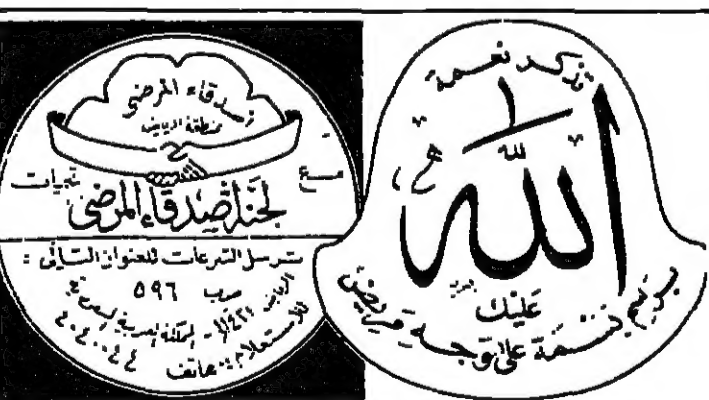 تذكر نعمة
الله
عليك
برسم بسمة على وجه مريض
أصدقاء المرضى
بمنطقة الرياض
مع تحيات
لجنة أصدقاء المرضى
ترسل التبرعات للعنوان التالي :
ص.ب ٥٩٦
الرياض - المملكة العربية السعودية
للاستعلام : هاتف ٤٠٤٠٠٤٤